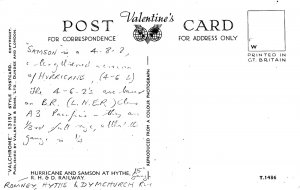 Valentine's
POST CARD
FOR CORRESPONDENCE
FOR ADDRESS ONLY
W
PRINTED IN
GT. BRITAIN
"VALCHROME" 1315V STYLE POSTCARD.
VALENTINE & SONS, LTD., DUNDEE AND LONDON
REPRODUCED FROM A COLOUR PHOTOGRAPH
SAMSON is a 4-8-2,
a lengthened version
of HURRICANE, (4-6-2)
The 4-6-2's are based
on B.R. (L.N.E.R.) Class
A3 Pacifics – they are
HURRICANE AND SAMSON AT HYTHE,
R. H. & D. RAILWAY.
15"
gauge
T.1486
ROMNEY, HYTHE & DYMCHURCH